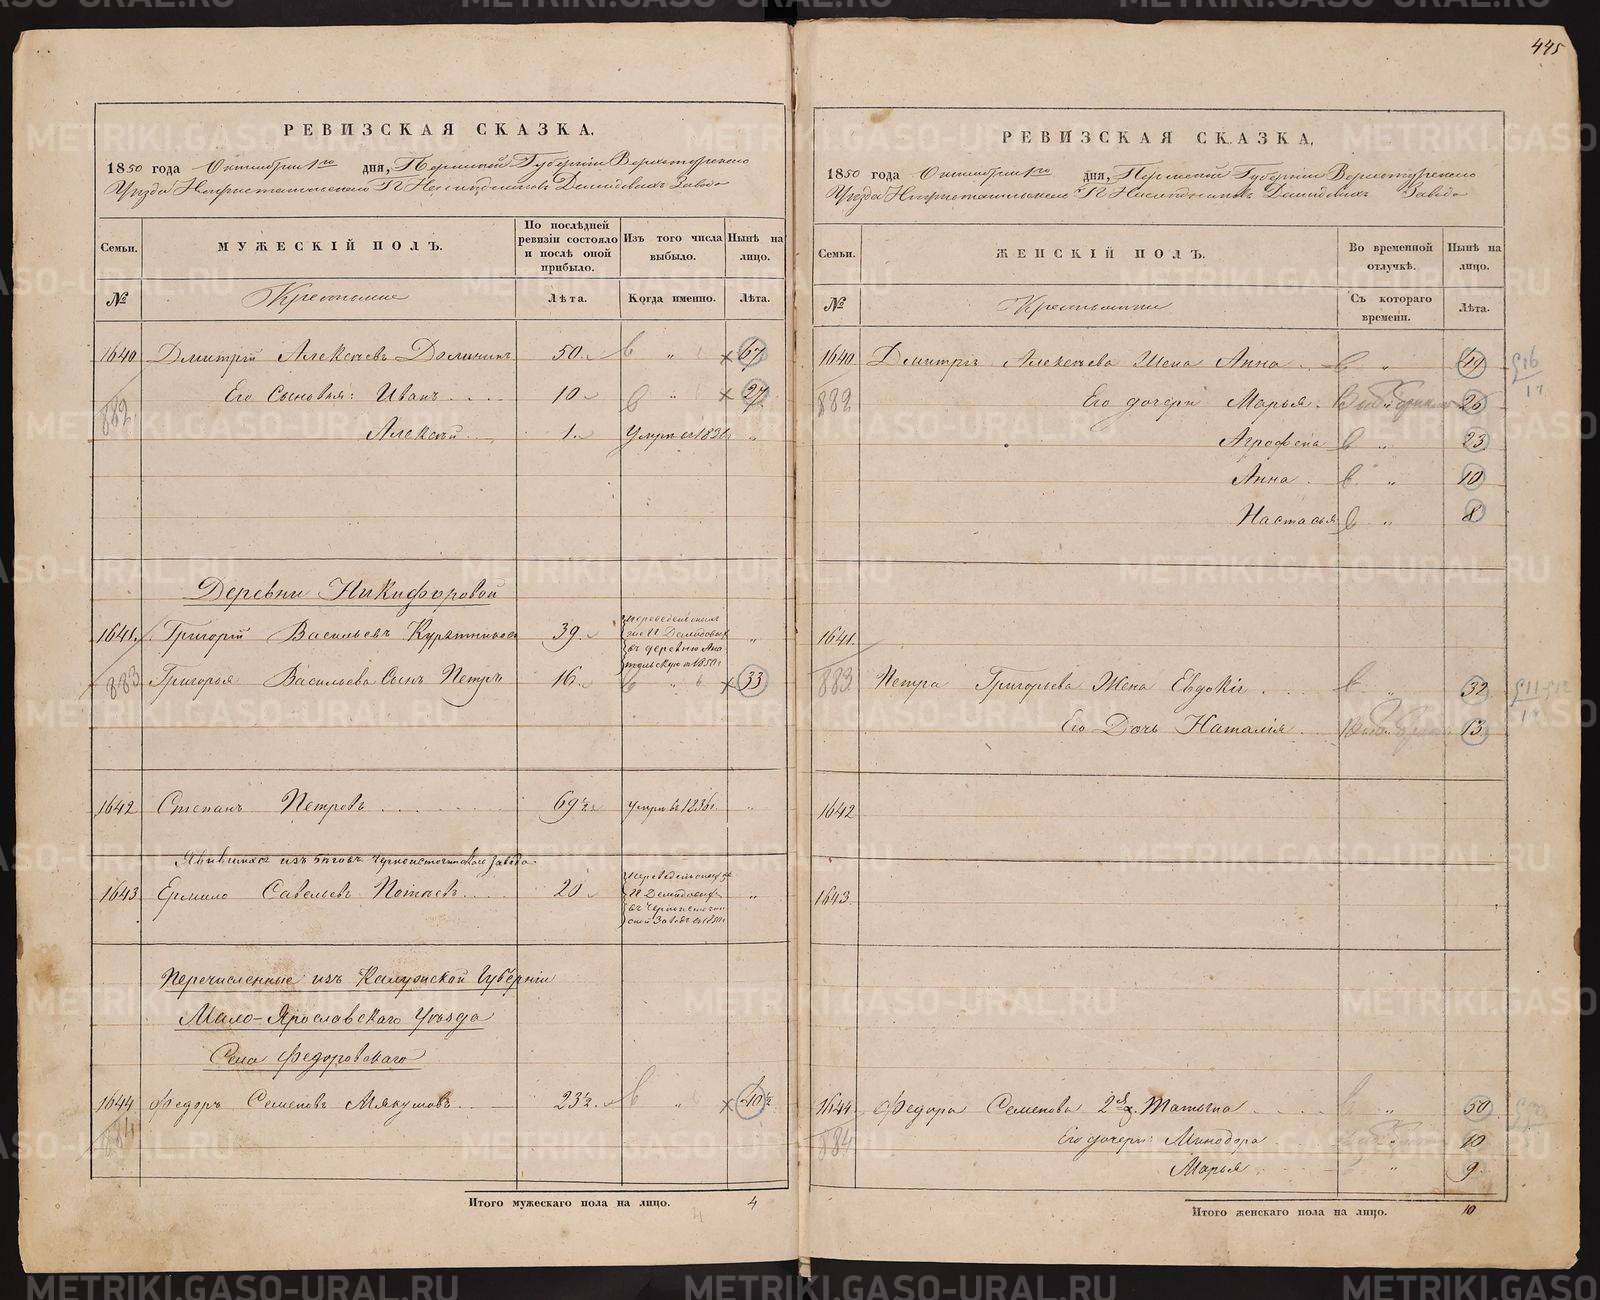 445
РЕВИЗСКАЯ СКАЗКА.
1850 года Октября 1го дня, Пермской Губернии Верхотурского
Уезда Нижнетагильского Гг Наследников Демидовых Завода
Семьи.
МУЖЕСКІЙ ПОЛЪ.
По послѣдней ревизіи состояло и послѣ оной прибыло.
Изъ того числа выбыло.
Нынѣ на лицо.
№
Крестьяне
Лѣта.
Когда именно.
Лѣта.
1640 Дмитрій Алексѣевъ 50. 67
882
Его Сыновья: Иванъ 10 27
Алексѣй 1. Умре въ 183
Деревни Никифоровой
1641. Григорій Васильевъ 39.
переведенъ
Гг Н Демидовыхъ
въ деревню
въ 1850 г
883 Григорья Васильева Сынъ Петръ 16. 33
1642 Степанъ Петровъ 69½ умре въ 1836г
Явившіися изъ бѣговъ Черноисточинскаго Завода
1643 Ермило Савельевъ 20
Н Демидовыхъ
въ Черноисточин
ской Заводъ въ 1850г
Перечисленные изъ Калужской Губерніи
Мало-Ярославскаго Уѣзда
Села Федоровскаго
1644 Федоръ Семеновъ Мякушовъ 23½. 40½
884
Итого мужескаго пола на лицо. 4
4
РЕВИЗСКАЯ СКАЗКА.
1850 года Октября 1го дня, Пермской Губерніи Верхотурскаго
Уѣзда Нижнетагильскаго Гг Наследниковъ Демидовыхъ Завода
Семьи.
ЖЕНСКІЙ ПОЛЪ.
Во временной отлучкѣ.
Нынѣ на лицо.
№
Крестьянки
Съ котораго времени.
Лѣта.
1640 Дмитрія Алексѣева Жена Анна 49
882 Его дочери Марья 26
Агрофена 23
Анна 10
Настасья 8
1641.
883. Петра Григорьева Жена Евдокія 32
Его Дочь Наталія 13
1642
1643
1644 Федора Семенова 2я Татьяна 50
884 Его дочери: Минодора 10
Марья 9.
Итого женскаго пола на лицо. 10
METRIKI.GASO-URAL.RU